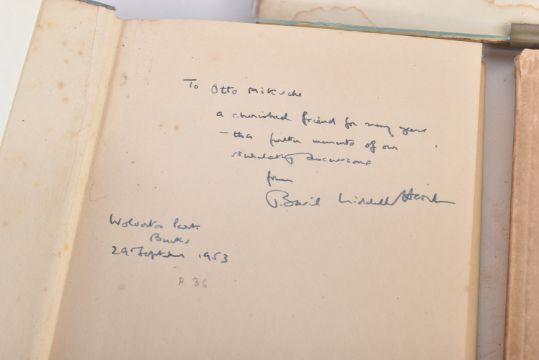 To Otto Miksche
a cherished friend for many years
– this further memento of our
stimulating discussions
from
Basil Liddell Hart
Wolverton Park
Bucks
29 September 1953
A 36